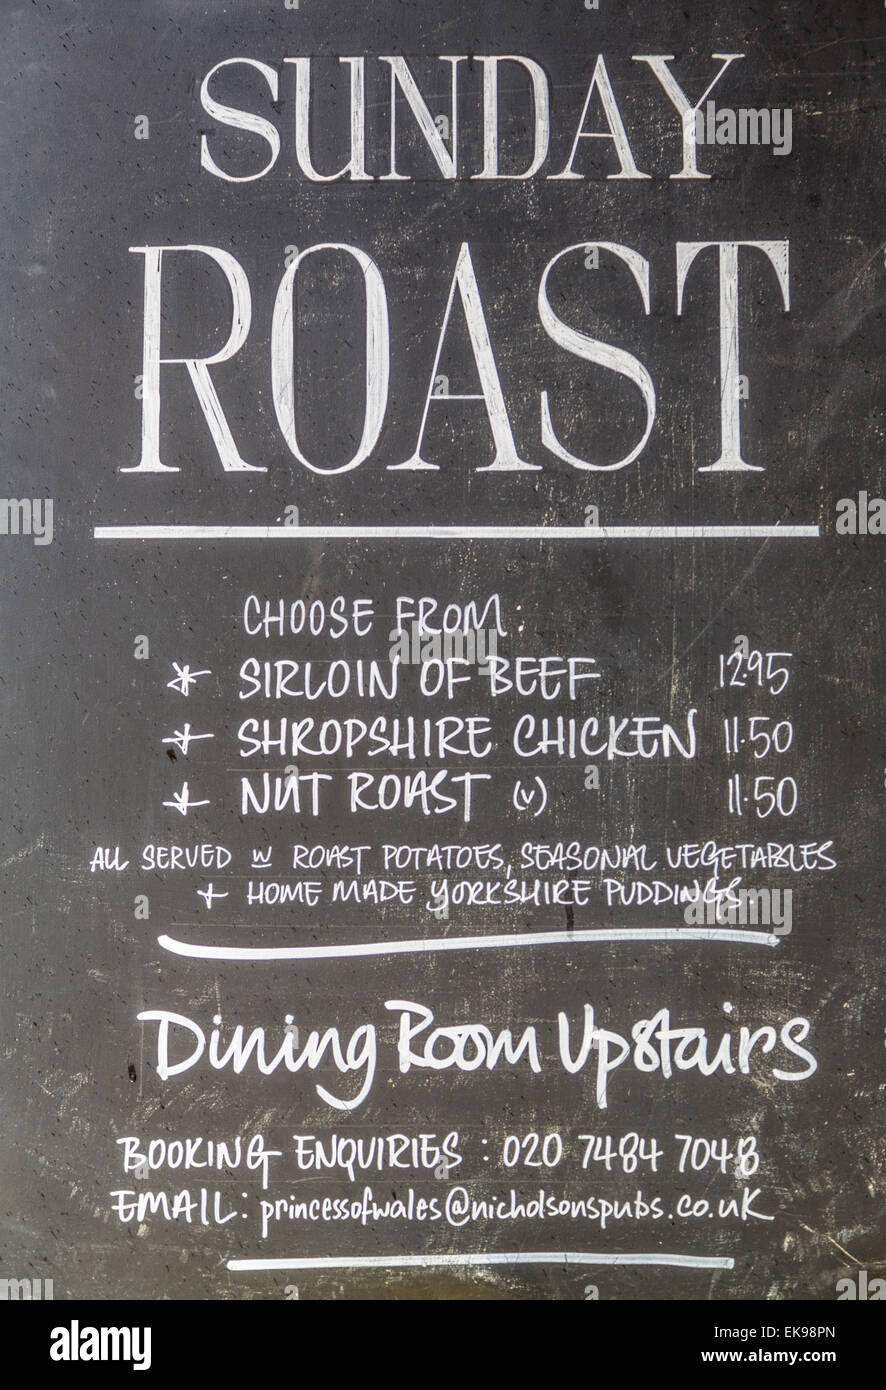 SUNDAY
ROAST
CHOOSE FROM:
* SIRLOIN OF BEEF 12.95
* SHROPSHIRE CHICKEN 11.50
* NUT ROAST (v) 11.50
ALL SERVED w ROAST POTATOES, SEASONAL VEGETABLES
+ HOME MADE YORKSHIRE PUDDINGS.
Dining Room Upstairs
BOOKING ENQUIRIES : 020 7484 7048
EMAIL: princessofwales@nicholsonspubs.co.uk
alamy
Image ID: EK98PN
www.alamy.com